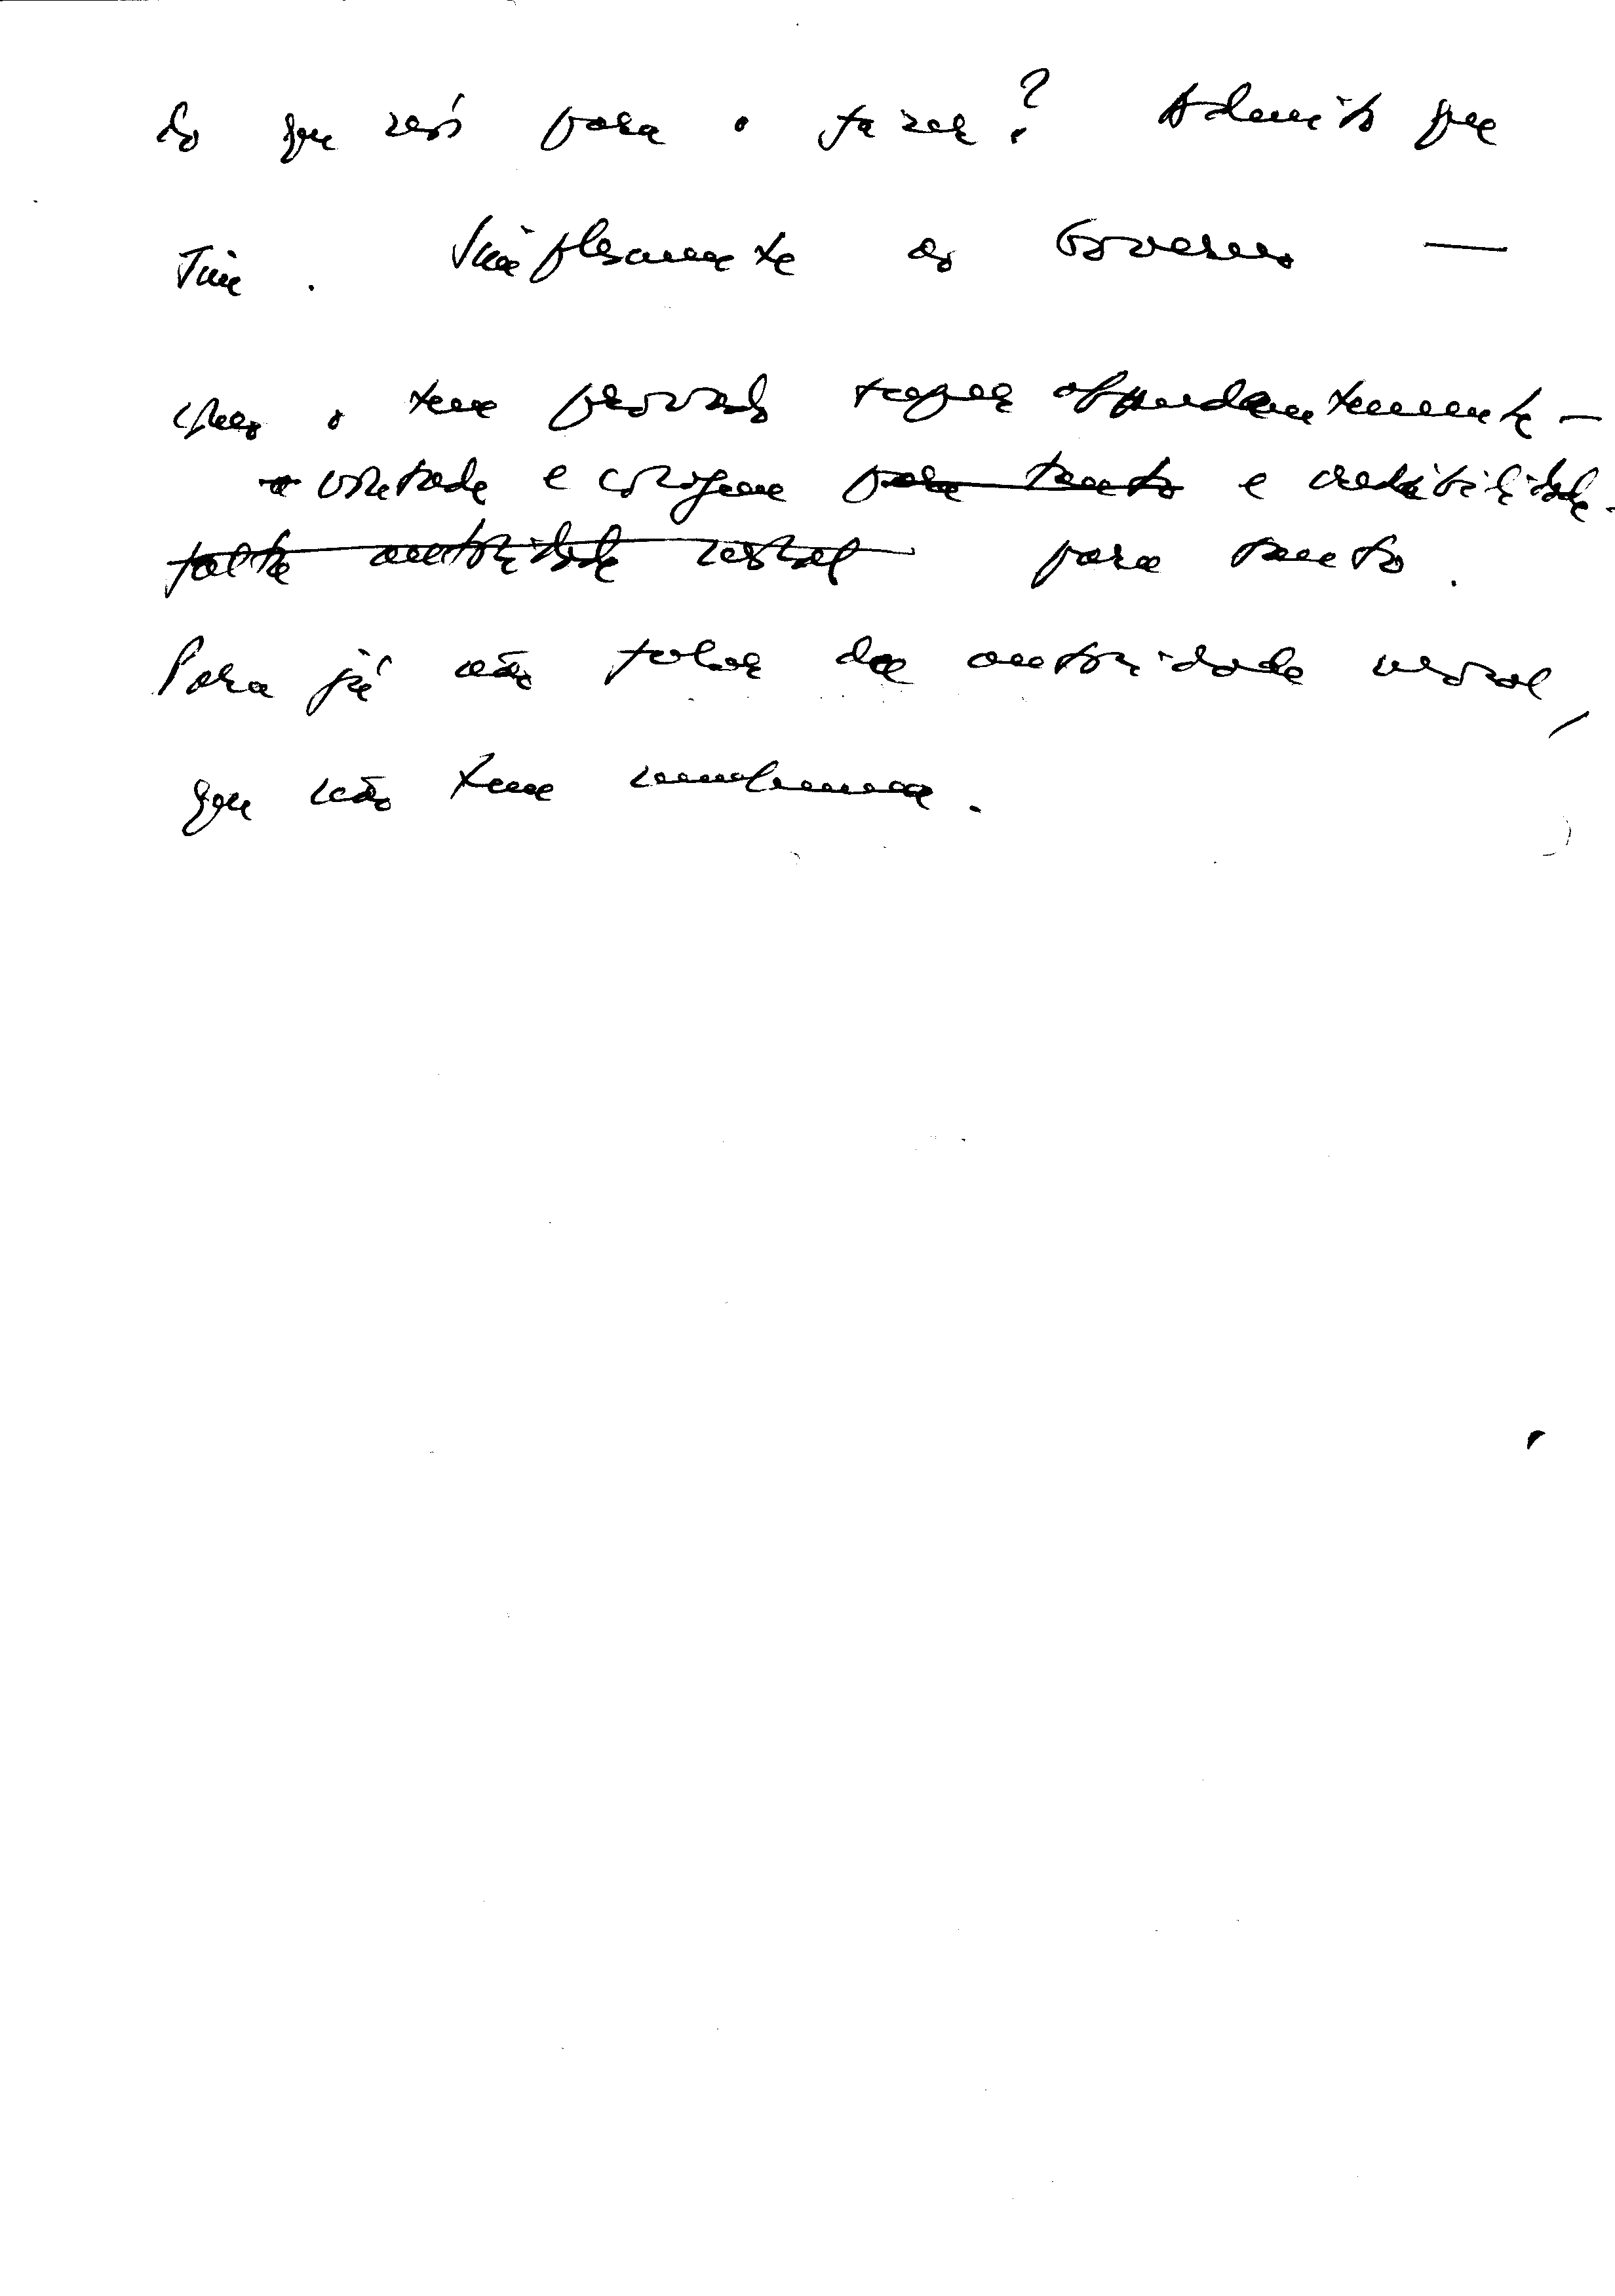 do que nós para o fazer? Admito que
sim. Simplesmente ao Governo —
como o tem provado abundantemente —
vontade e coragem para tanto e credibilidade
falta autoridade moral para tanto.
Para já não falar da autoridade moral,
que não tem nenhuma.